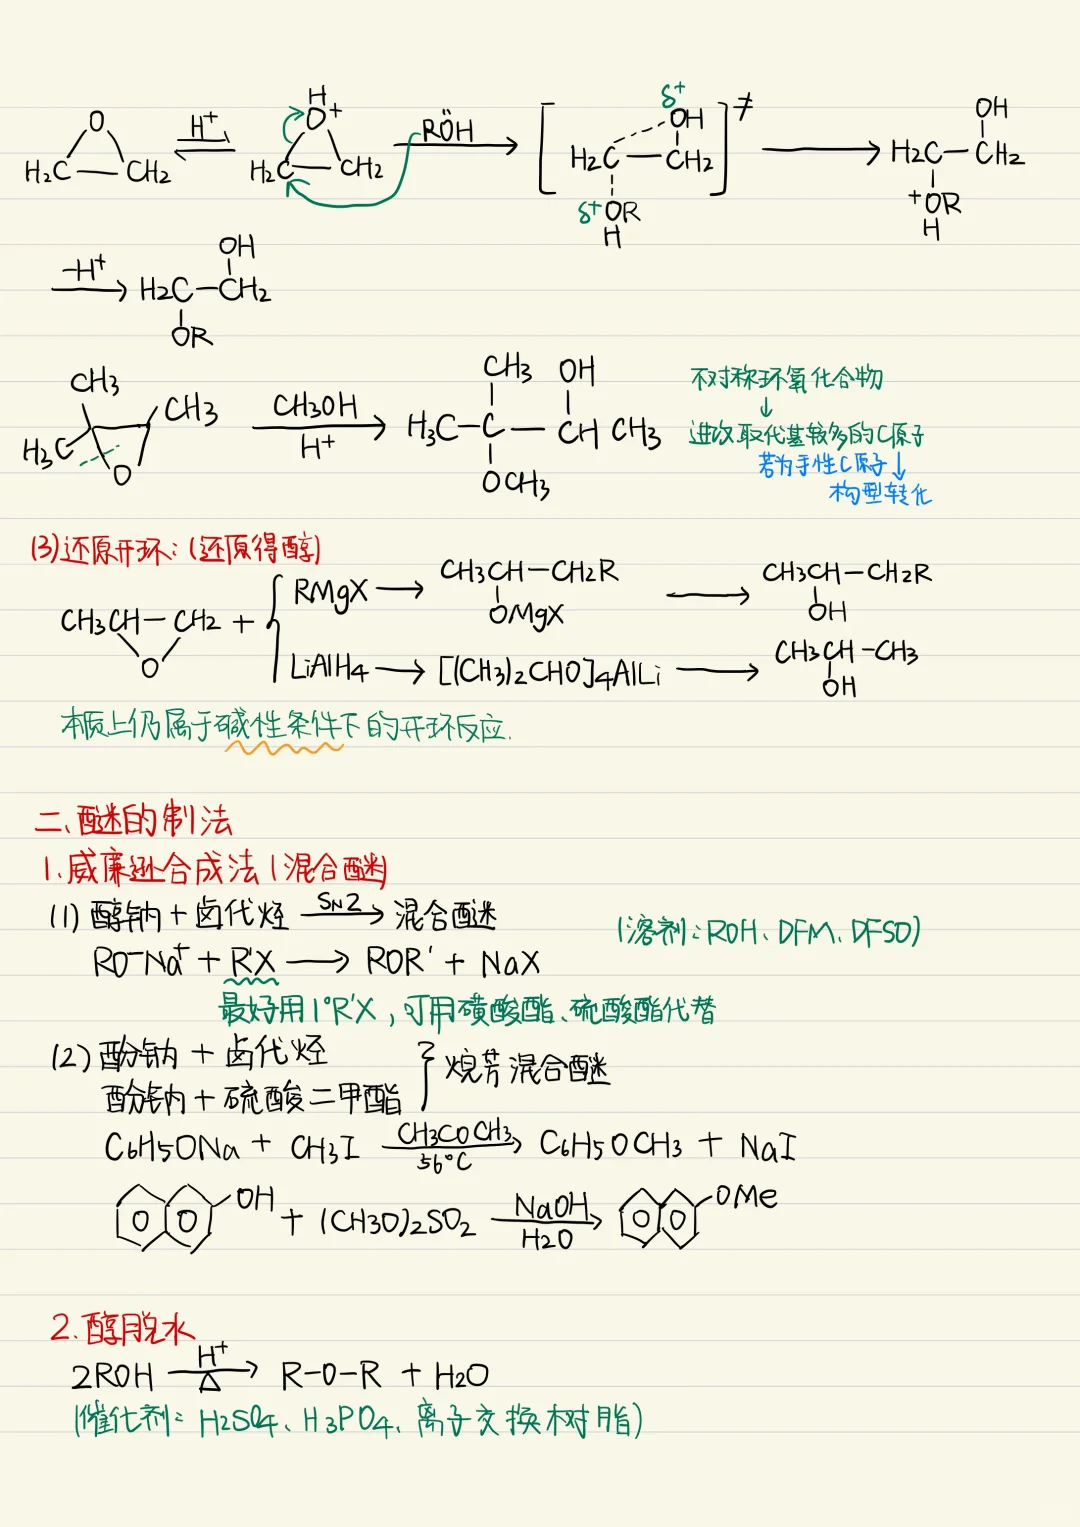 H₂C—CH₂ O ⇌ H⁺ H₂C—CH₂ OH⁺ → RÖH [H₂C—CH₂ OH δ⁺ δ⁺OR H]≠ → H₂C—CH₂ OH ⁺OR H
-H⁺ → H₂C—CH₂ OH OR
CH₃ H₃C CH₃ O → CH₃OH H⁺ H₃C—C—CH CH₃ CH₃ OH OCH₃
不对称环氧化合物
↓
进攻取代基较多的C原子
若为手性C原子↓
构型转化
(3)还原开环:(还原得醇)
CH₃CH—CH₂ O + { RMgX → CH₃CH—CH₂R OMgX → CH₃CH—CH₂R OH
LiAlH₄ → [(CH₃)₂CHO]₄AlLi → CH₃CH-CH₃ OH
本质上仍属于碱性条件下的开环反应.
二、醚的制法
1.威廉逊合成法(混合醚)
(1)醇钠+卤代烃 SN2→ 混合醚 (溶剂:ROH、DFM、DFSO)
RO⁻Na⁺ + R'X → ROR' + NaX
最好用1°R'X,可用磺酸酯、硫酸酯代替
(2)酚钠+卤代烃
酚钠+硫酸二甲酯 } 烷芳混合醚
C₆H₅ONa + CH₃I CH₃COCH₃ 56°C → C₆H₅OCH₃ + NaI
OH + (CH₃O)₂SO₂ NaOH H₂O → OMe
2.醇脱水
2ROH H⁺ △ → R-O-R + H₂O
(催化剂:H₂SO₄、H₃PO₄、离子交换树脂)